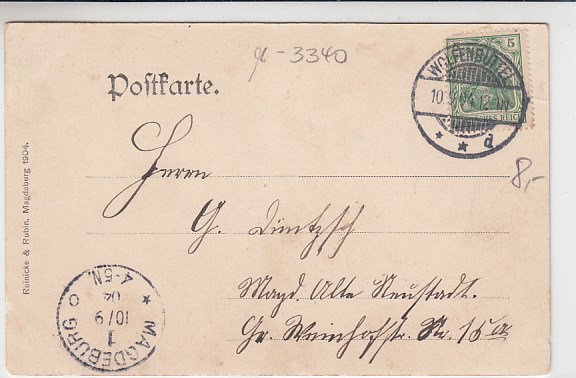 α - 3340
Postkarte.
5
DEUTSCHES REICH
WOLFENBÜTTEL
10.9.04.12
* * d
8,-
Herrn
G. Dintzsch
Magd. Alte Neustadt.
Gr. Weinhofstr. Nr. 15a
Reinicke & Rubin, Magdeburg 1904.
MAGDEBURG
1
10/9
04
4-5N.